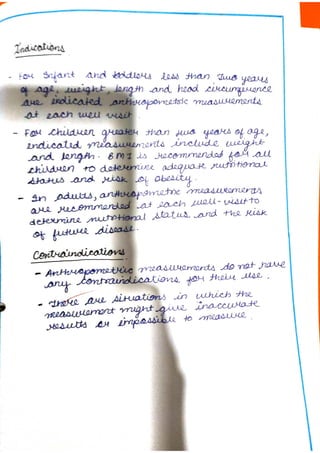 Indications
- For Infant and toddlers less than Two years
of age, weight, length and head circumference
are indicated anthropometric measurements
at each well visit.
- For children greater than two years of age,
indicated measurements include weight
and length. BMI is recommended for all
children to determine adequate nutritional
status and risk of obesity.
- In adults, anthropometric measurements
are recommended at each well-visit to
determine nutritional status and the risk
of future disease.
Contraindications
- Anthropometric measurements do not have
any contraindications for their use.
- There are situations in which the
measurement might give inaccurate
results or impossible to measure.